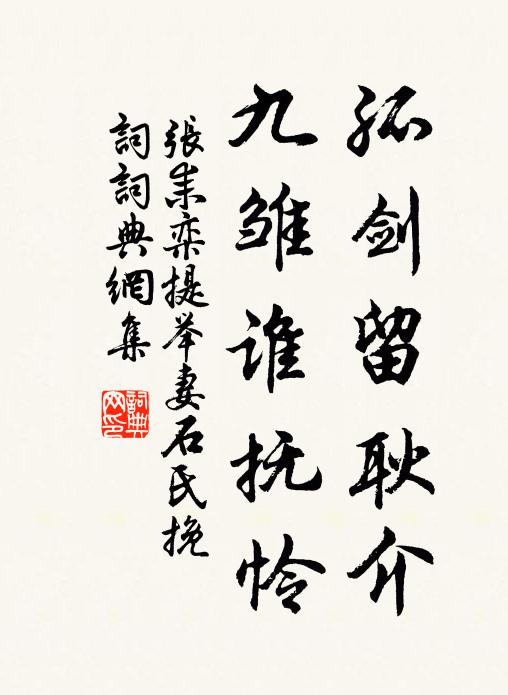 孤剑留耿介
九雏谁抚怜
張耒栾提举妻石氏挽
詞詞典網集
詞典網印